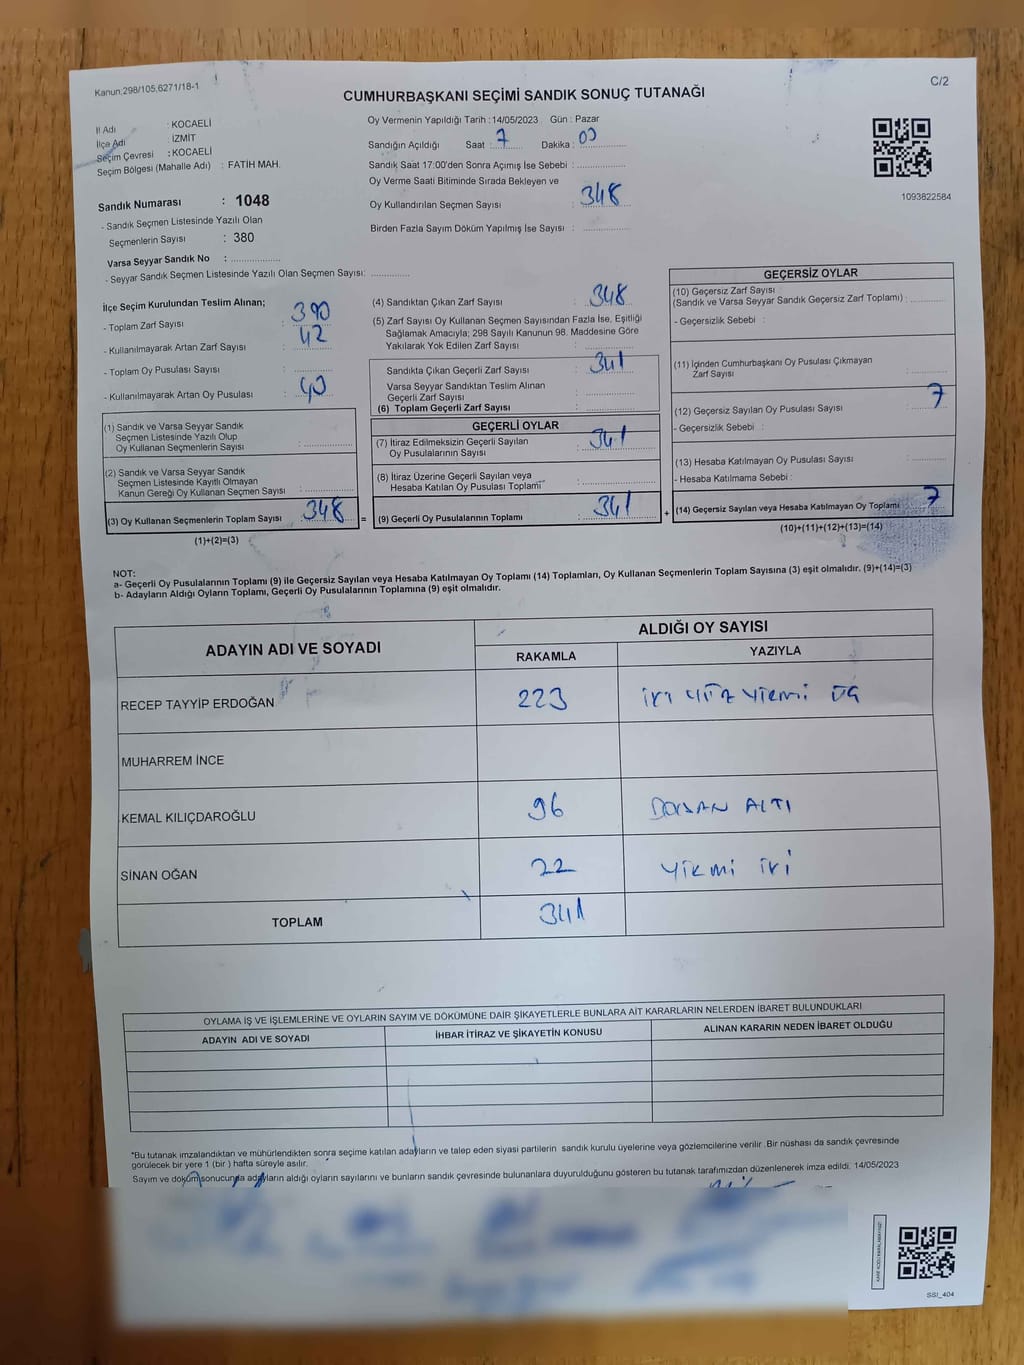 Kanun;298/105,6271/18-1
C/2
CUMHURBAŞKANI SEÇİMİ SANDIK SONUÇ TUTANAĞI
İl Adı : KOCAELİ
İlçe Adı : İZMİT
Seçim Çevresi : KOCAELİ
Seçim Bölgesi (Mahalle Adı) : FATİH MAH.
Oy Vermenin Yapıldığı Tarih : 14/05/2023 Gün : Pazar
Sandığın Açıldığı Saat : 7 Dakika : 00
Sandık Saat 17:00'den Sonra Açımış İse Sebebi :
Oy Verme Saati Bitiminde Sırada Bekleyen ve
Oy Kullandırılan Seçmen Sayısı : 348
Birden Fazla Sayım Döküm Yapılmış İse Sayısı :
1093822584
Sandık Numarası : 1048
- Sandık Seçmen Listesinde Yazılı Olan
Seçmenlerin Sayısı : 380
Varsa Seyyar Sandık No :
- Seyyar Sandık Seçmen Listesinde Yazılı Olan Seçmen Sayısı:
İlçe Seçim Kurulundan Teslim Alınan;
- Toplam Zarf Sayısı : 390
- Kullanılmayarak Artan Zarf Sayısı : 42
- Toplam Oy Pusulası Sayısı :
- Kullanılmayarak Artan Oy Pusulası : 40
(1) Sandık ve Varsa Seyyar Sandık
Seçmen Listesinde Yazılı Olup
Oy Kullanan Seçmenlerin Sayısı :
(2) Sandık ve Varsa Seyyar Sandık
Seçmen Listesinde Kayıtlı Olmayan
Kanun Gereği Oy Kullanan Seçmen Sayısı :
(3) Oy Kullanan Seçmenlerin Toplam Sayısı : 348 =
(1)+(2)=(3)
(4) Sandıktan Çıkan Zarf Sayısı : 348
(5) Zarf Sayısı Oy Kullanan Seçmen Sayısından Fazla İse, Eşitliği
Sağlamak Amacıyla; 298 Sayılı Kanunun 98. Maddesine Göre
Yakılarak Yok Edilen Zarf Sayısı :
Sandıkta Çıkan Geçerli Zarf Sayısı : 341
Varsa Seyyar Sandıktan Teslim Alınan
Geçerli Zarf Sayısı :
(6) Toplam Geçerli Zarf Sayısı :
GEÇERLİ OYLAR
(7) İtiraz Edilmeksizin Geçerli Sayılan
Oy Pusulalarının Sayısı : 341
(8) İtiraz Üzerine Geçerli Sayılan veya
Hesaba Katılan Oy Pusulası Toplamı :
(9) Geçerli Oy Pusulalarının Toplamı : 341 +
GEÇERSİZ OYLAR
(10) Geçersiz Zarf Sayısı
(Sandık ve Varsa Seyyar Sandık Geçersiz Zarf Toplamı) :
- Geçersizlik Sebebi :
(11) İçinden Cumhurbaşkanı Oy Pusulası Çıkmayan
Zarf Sayısı :
(12) Geçersiz Sayılan Oy Pusulası Sayısı : 7
- Geçersizlik Sebebi :
(13) Hesaba Katılmayan Oy Pusulası Sayısı :
- Hesaba Katılmama Sebebi :
(14) Geçersiz Sayılan veya Hesaba Katılmayan Oy Toplamı 7
(10)+(11)+(12)+(13)=(14)
NOT:
a- Geçerli Oy Pusulalarının Toplamı (9) ile Geçersiz Sayılan veya Hesaba Katılmayan Oy Toplamı (14) Toplamları, Oy Kullanan Seçmenlerin Toplam Sayısına (3) eşit olmalıdır. (9)+(14)=(3)
b- Adayların Aldığı Oyların Toplamı, Geçerli Oy Pusulalarının Toplamına (9) eşit olmalıdır.
ADAYIN ADI VE SOYADI
ALDIĞI OY SAYISI
RAKAMLA YAZIYLA
RECEP TAYYİP ERDOĞAN 223 iki yüz yirmi üç
MUHARREM İNCE
KEMAL KILIÇDAROĞLU 96 DOKSAN ALTI
SİNAN OĞAN 22 yirmi iki
TOPLAM 341
OYLAMA İŞ VE İŞLEMLERİNE VE OYLARIN SAYIM VE DÖKÜMÜNE DAİR ŞİKAYETLERLE BUNLARA AİT KARARLARIN NELERDEN İBARET BULUNDUKLARI
ADAYIN ADI VE SOYADI İHBAR İTİRAZ VE ŞİKAYETİN KONUSU ALINAN KARARIN NEDEN İBARET OLDUĞU
*Bu tutanak imzalandıktan ve mühürlendikten sonra seçime katılan adayların ve talep eden siyasi partilerin sandık kurulu üyelerine veya gözlemcilerine verilir .Bir nüshası da sandık çevresinde
görülecek bir yere 1 (bir ) hafta süreyle asılır.
Sayım ve döküm sonucunda adayların aldığı oyların sayılarını ve bunların sandık çevresinde bulunanlara duyurulduğunu gösteren bu tutanak tarafımızdan düzenlenerek imza edildi. 14/05/2023
SSİ_404